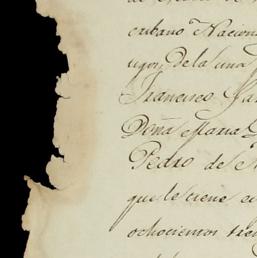 cribano Nacion
ugor, de la una
Francisco Ja
Doña Maria
Pedro de
que le tiene
ochocientos trei